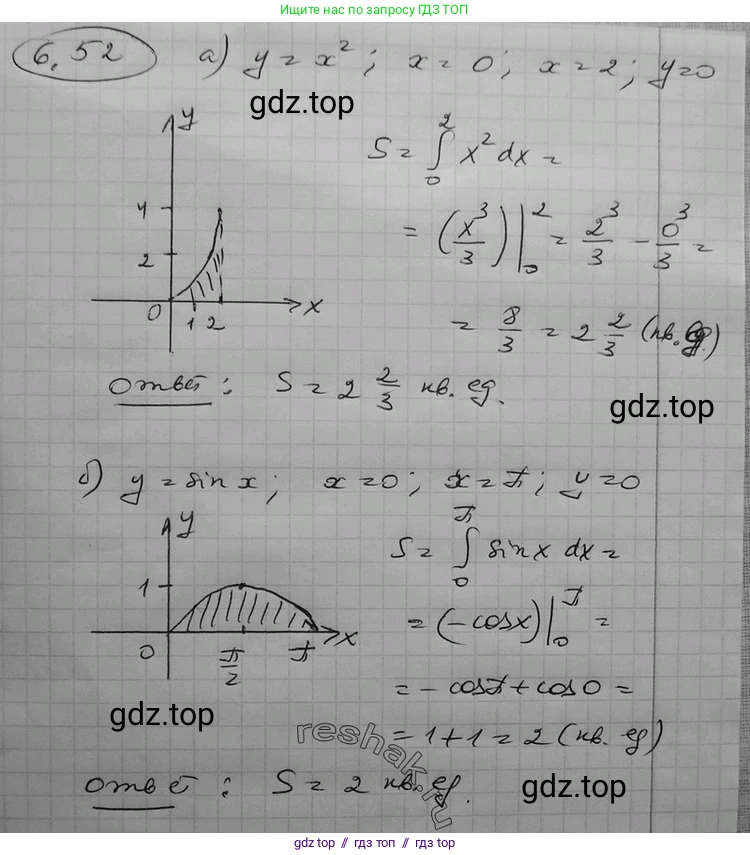 Ищите нас по запросу ГДЗ ТОП
6.52 а) y = x²; x = 0; x = 2; y=0
gdz.top
y
4
2
0 1 2 x
S = ∫₀² x² dx =
= (x³/3)|₀² = 2³/3 - 0³/3 =
= 8/3 = 2 2/3 (кв. ед.)
Ответ: S = 2 2/3 кв. ед.
gdz.top
б) y = sin x; x = 0; x = π; y = 0
y
1
0 π/2 π x
S = ∫₀^π sin x dx =
= (-cos x)|₀^π =
= - cos π + cos 0 =
= 1 + 1 = 2 (кв. ед)
gdz.top
reshak.ru
Ответ: S = 2 кв. ед.
gdz.top
gdz top // гдз топ // gdz top